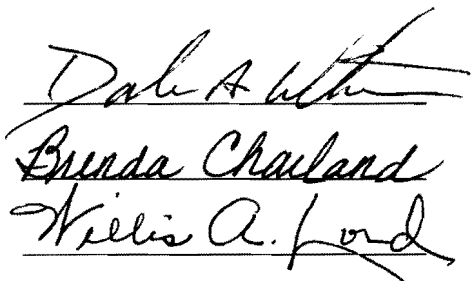 Dale A
Brenda Chailand
Willis A. Lord